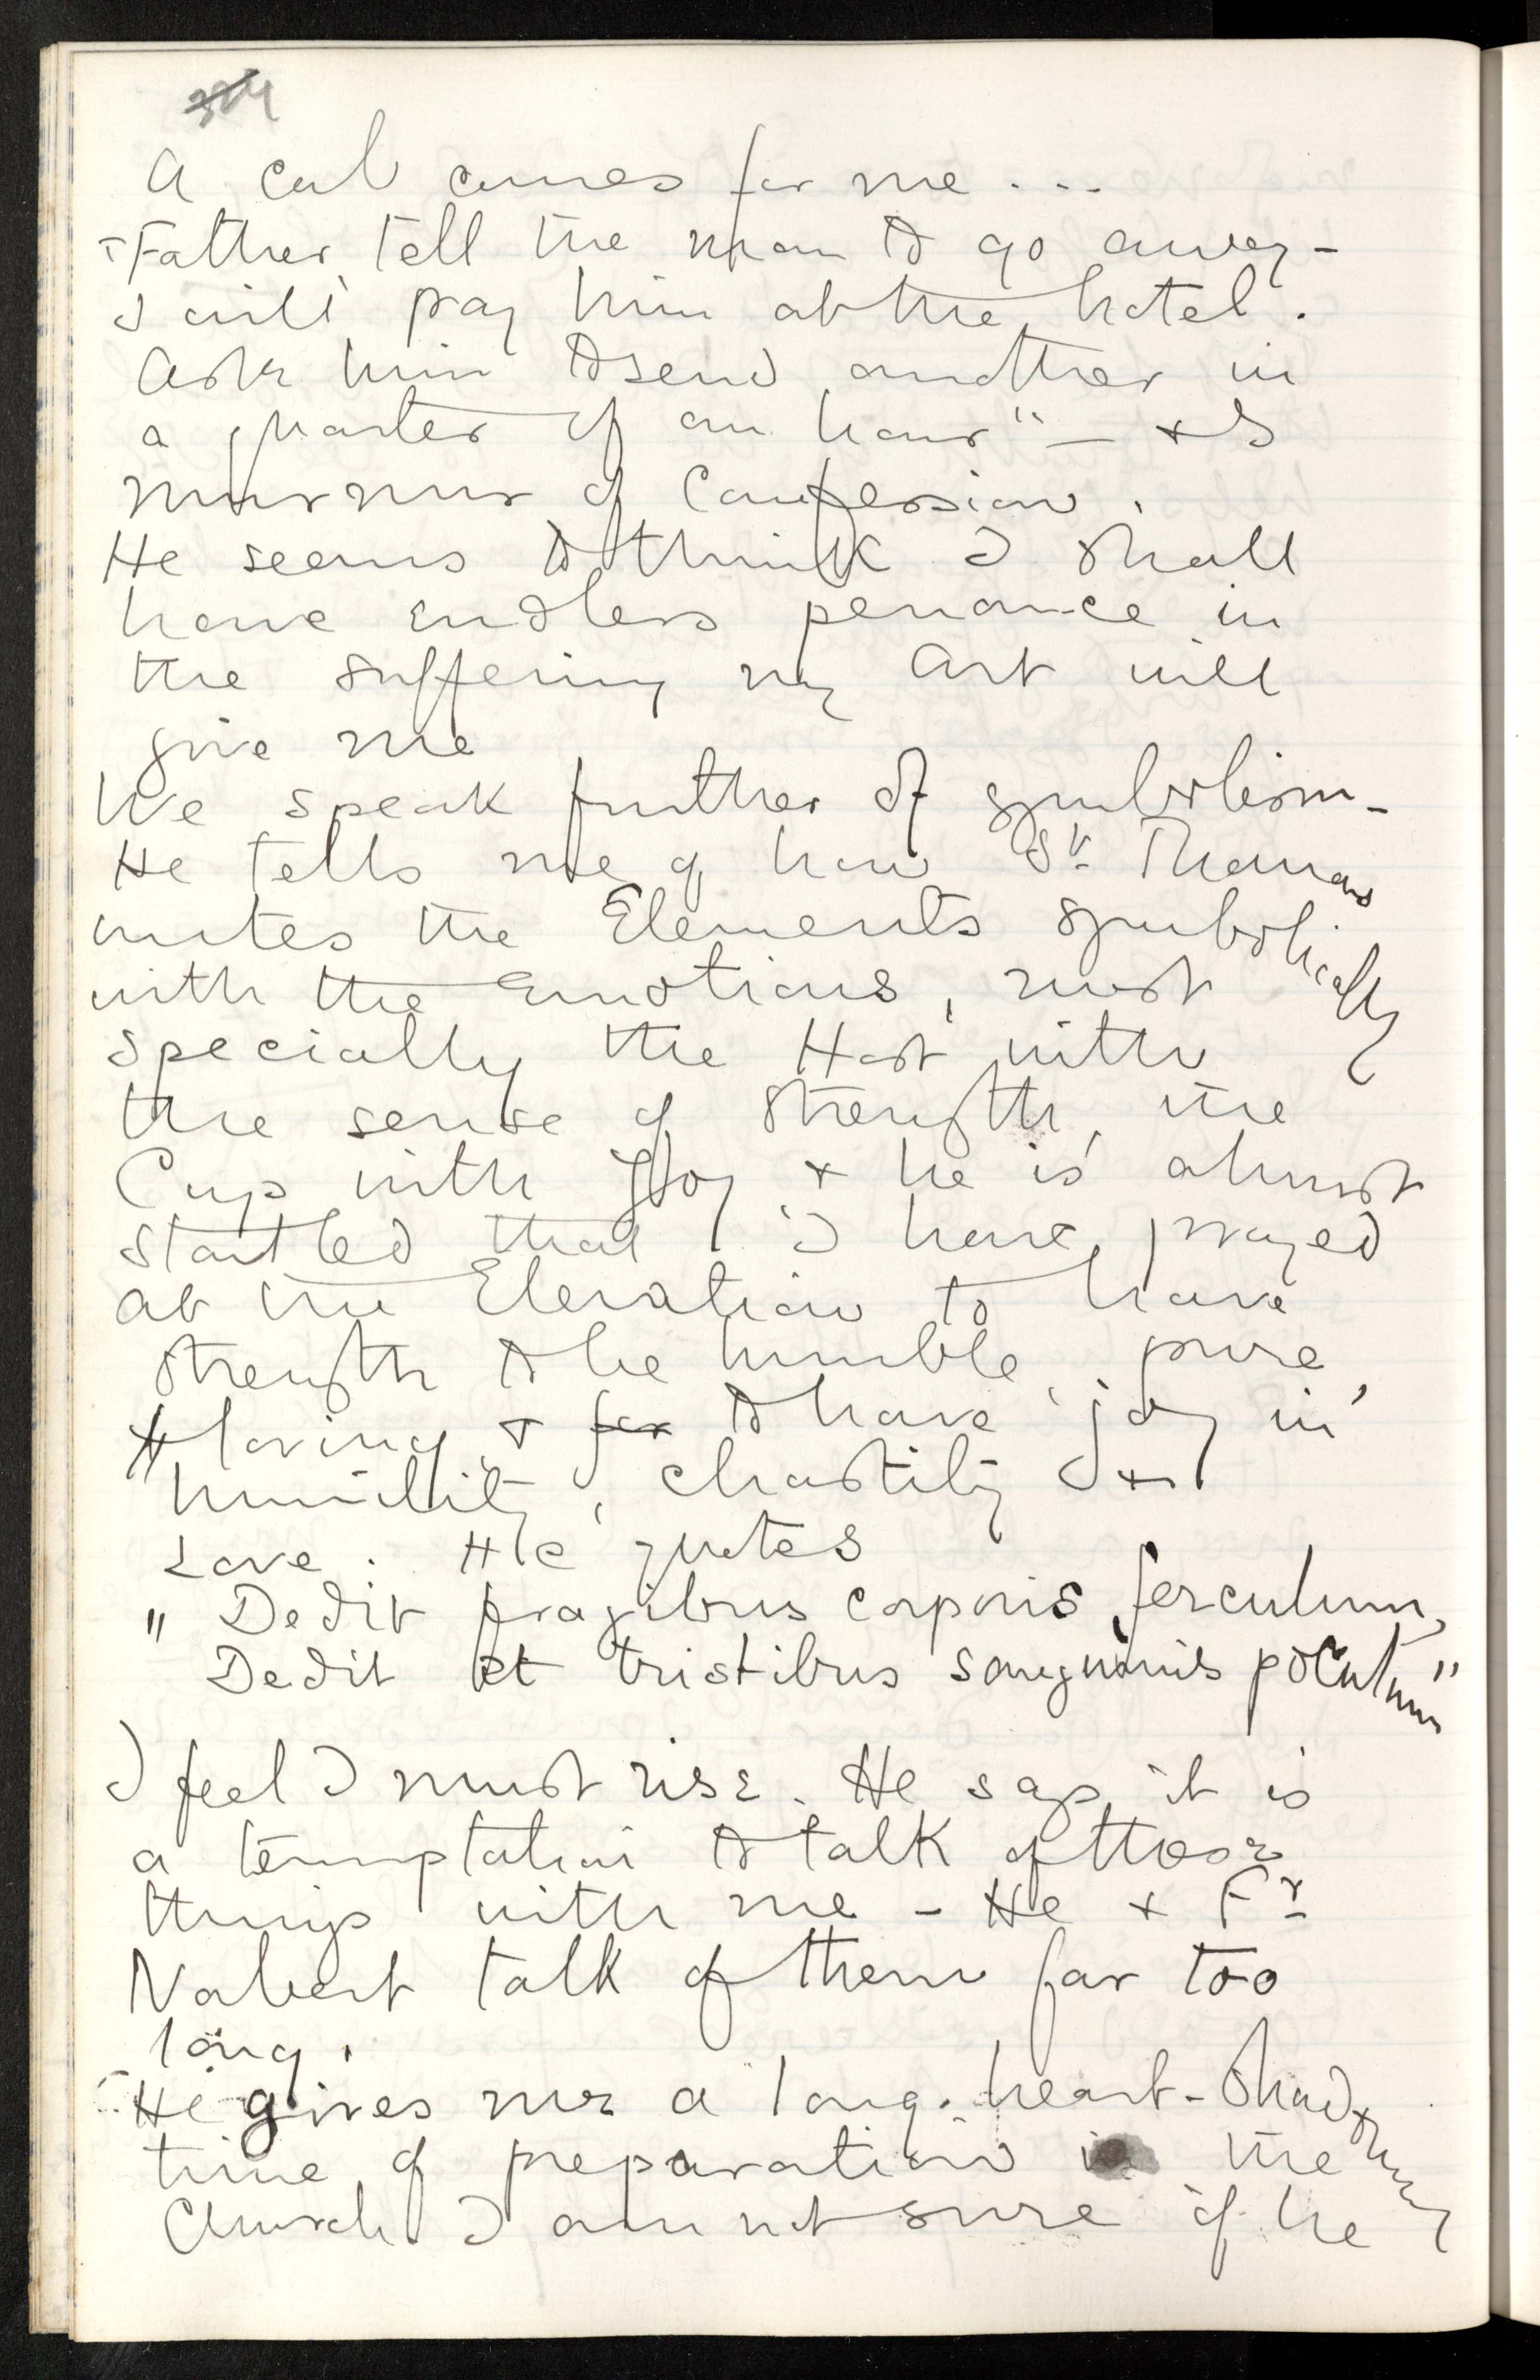 A cab comes for me . . .
"Father, tell the man to go away –
I will pay him at the hotel.
Ask him to send another in
a quarter of an hour" – + I
murmur of Confession.
He seems to think I shall
have endless penance in
the suffering my Art will
give me
We speak further of symbolism –
He tells me of how St Thomas
unites the Elements symbolically
with the Emotions, most
specially the Host with
the sense of Strength, the
Cup with Joy + he is almost
startled that I have prayed
at the Elevation to have
strength to be humble, pure,
loving, + for to have joy in
humility, chastity +
Love. He quotes
"Dedit fragilibus corporis ferculum,
Dedit et tristibus sanguinis poculum"
I feel I must rise. He says it is
a temptation to talk of these
things with me – He + Fr
Nabert talk of them far too
long.
He gives me a long heart-shadowing
time of preparation in the
Church I am not sure if he